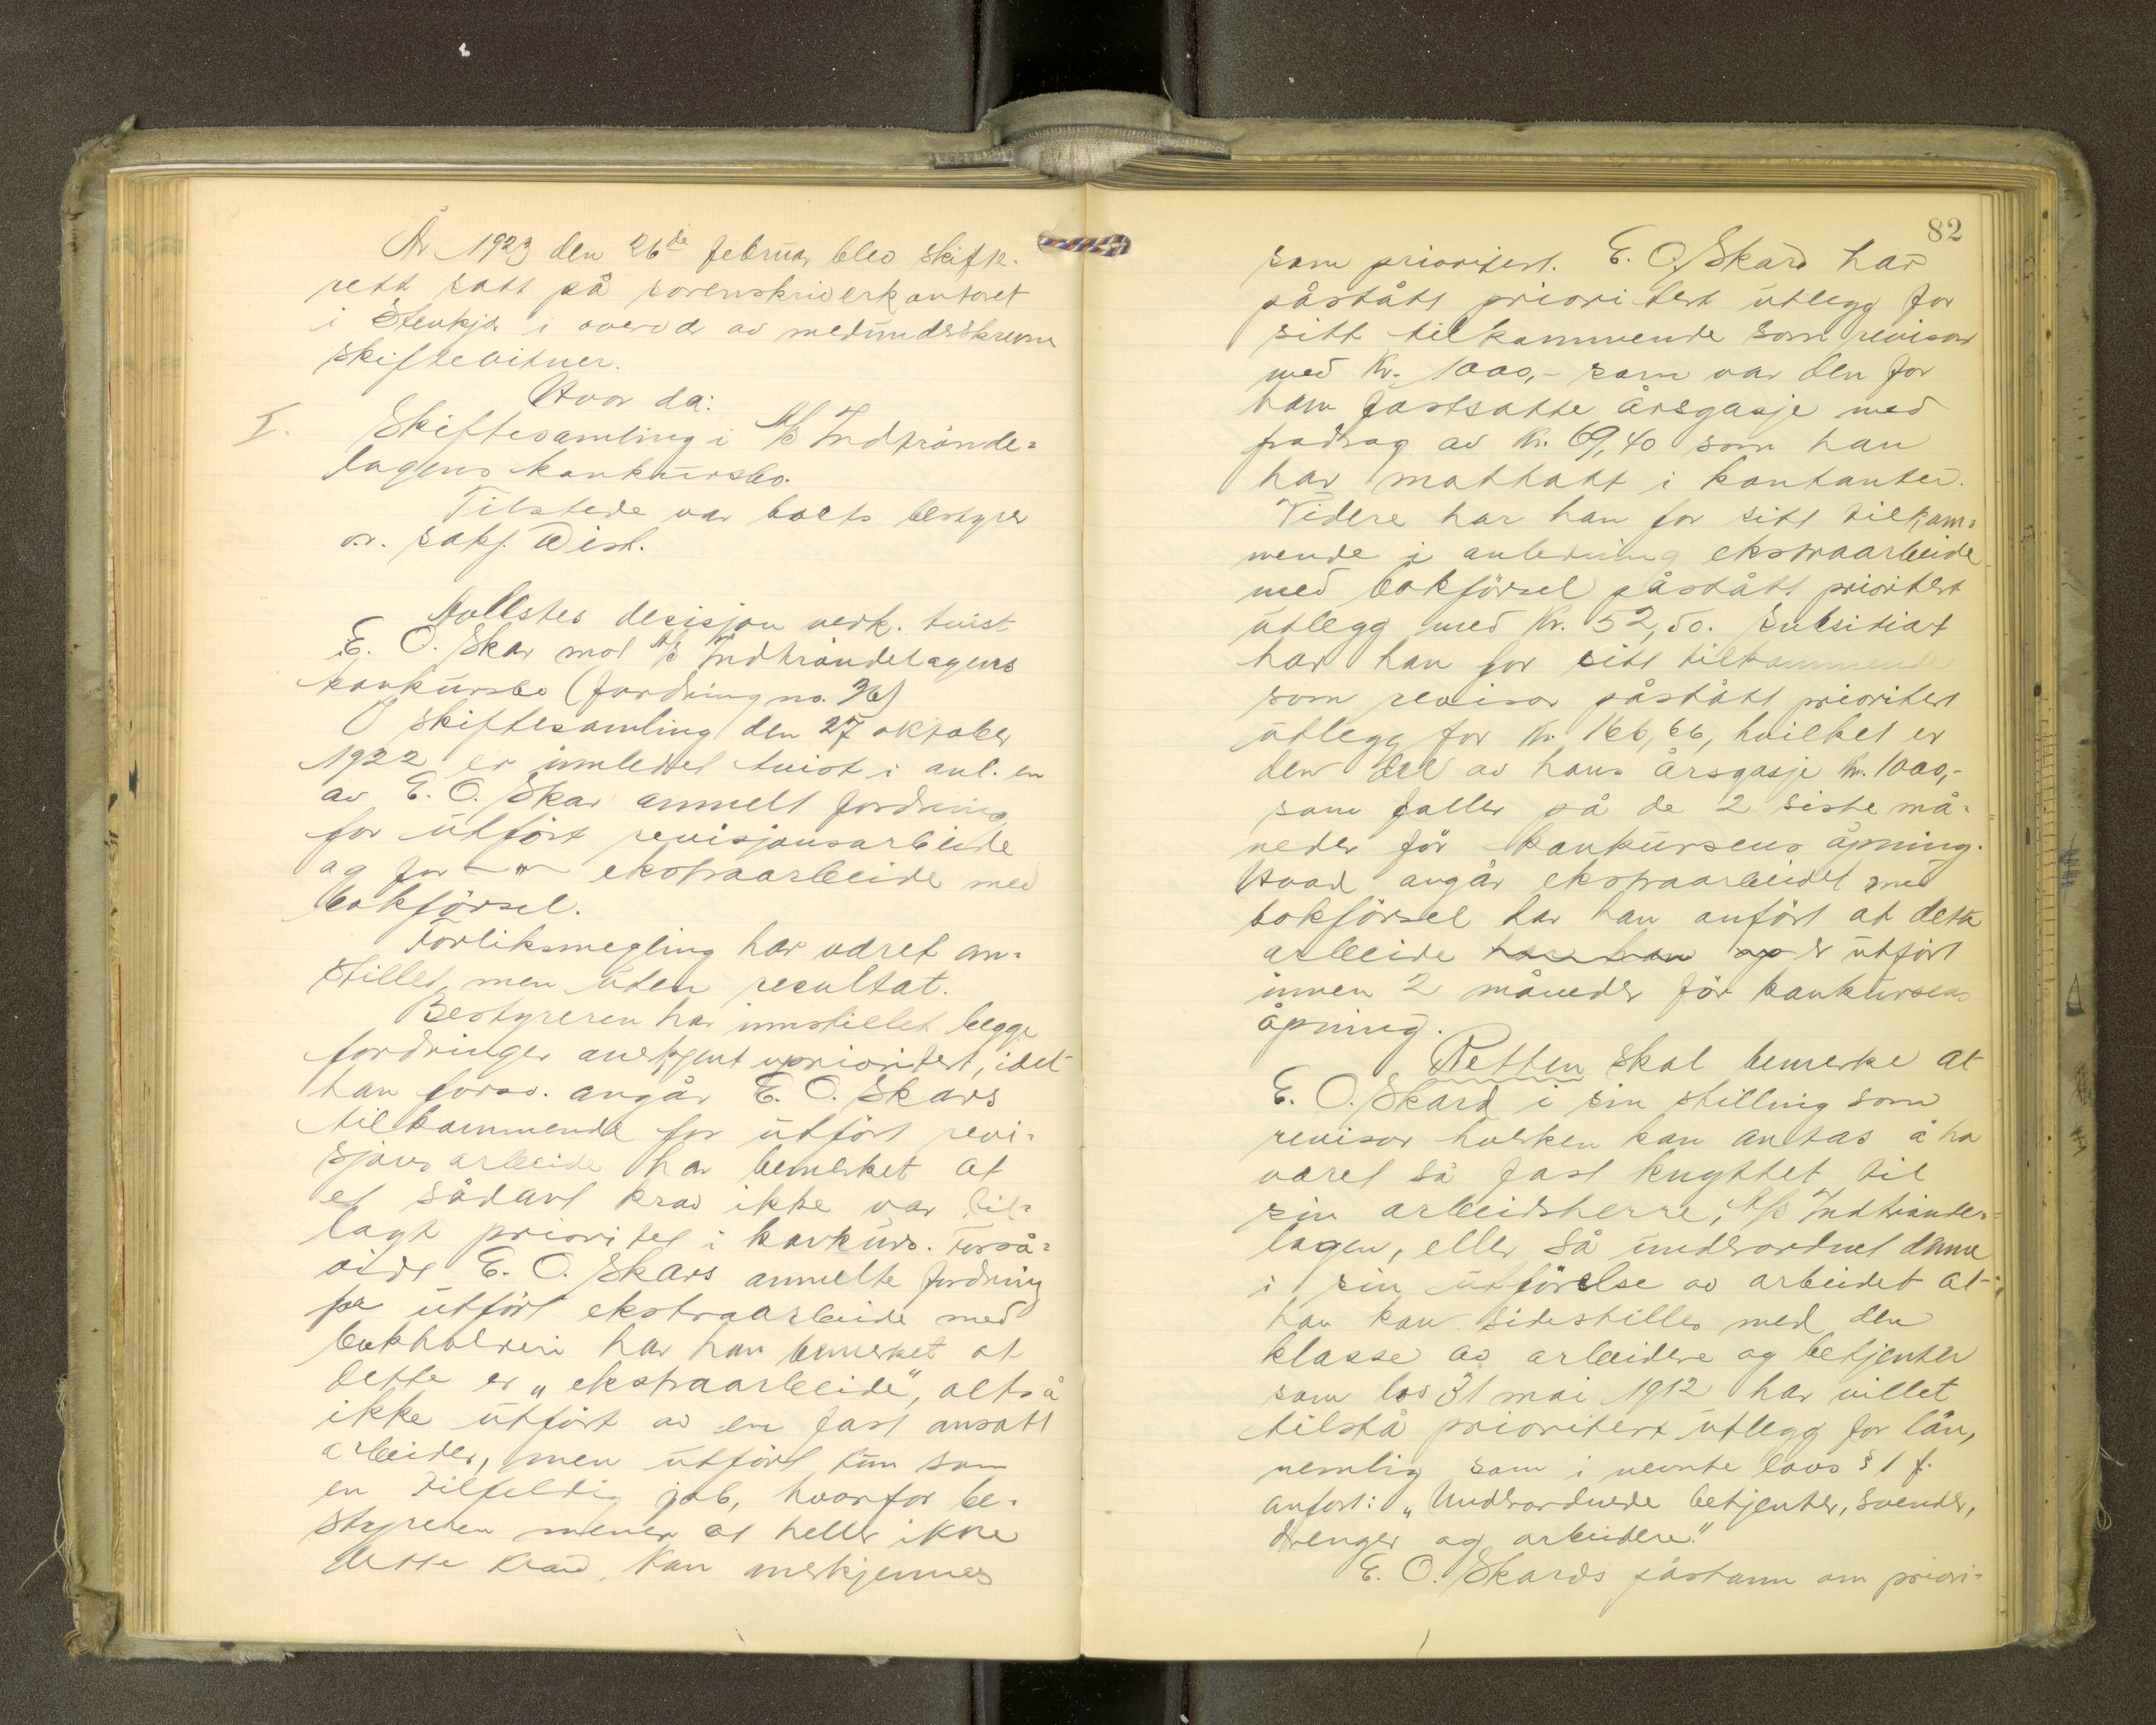 År 1923 den 26de februar blev skifte-
rett satt på sorenskriverkontoret
i Stenkjær i overvær av medunderskrevne
skiftevitner.
Hvor da:
I. Skiftesamling i A/S Indtrønde-
lagens konkursbo.
Tilstede var boets bestyrer
o.r. sakf. Wist.
Avllstes desisjon vedk. tvist
E. O. Skar mot A/S Indtrøndelagens
konkursbo (fordring no. 36)
I skiftesamling den 27 oktober
1922 er innledet tvist i anl. en
av E. O. Skar anmelt fordring
for utført revisjonsarbeide
og for —"— ekstraarbeide med
bokførsel.
Forliksmegling har været an-
stillet, men uten resultat.
Bestyreren har innstillet begge
fordringer anerkjent uprioritert, idet
han forsv. angår E. O. Skars
tilkommende for utført revi-
sjonsarbeide har bemerket at
et sådant krav ikke var til-
lagt prioritet i konkurs. Forså-
vidt E. O. Skars anmelte fordring
for utført ekstraarbeide med
bokholderi har han bemerket at
dette er „ekstraarbeide", altså
ikke utført av en fast ansatt
arbeider, men utført kun som
en tilfeldig jobb, hvorfor be-
styreren mener at heller ikke
dette krav kan anerkjennes
82
som prioritert. E. O. Skard har
påstått prioritert utlegg for
sitt tilkommende som revisor
med kr. 1000,- som var den for
ham fastsatte årsgasje med
fradrag av kr. 69,40 som han
har mottatt i kontanter.
Videre har han for sitt tilkom-
mende i anledning ekstraarbeide
med bokførsel påstått prioritert
utlegg med kr. 52,50. Subsidiært
har han for sitt tilkommende
som revisor påstått prioritert
utlegg for kr. 166,66, hvilket er
den del av hans årsgasje kr. 1000,-
som faller på de 2 siste må-
neder før konkursens åpning.
Hvad angår ekstraarbeidet med
bokførsel har han anført at dette
arbeide har han og er utført
innen 2 måneder før konkursens
åpning.
Retten skal bemerke at
E. O. Skard i sin stilling som
revisor hverken kan antas å ha
været så fast knyttet til
sin arbeidsherre, A/S Indtrønder-
lagen, eller så underordnet denne
i sin utførelse av arbeidet at
han kan sidestilles med den
klasse av arbeidere og betjenter
som lov 31 mai 1912 har villet
tilstå prioritert utlegg for lønn,
nemlig som i nevnte lovs § 1 f.
anført: „Underordnede betjenter, svender,
drenger og arbeidere."
E. O. Skards påstann om priori-